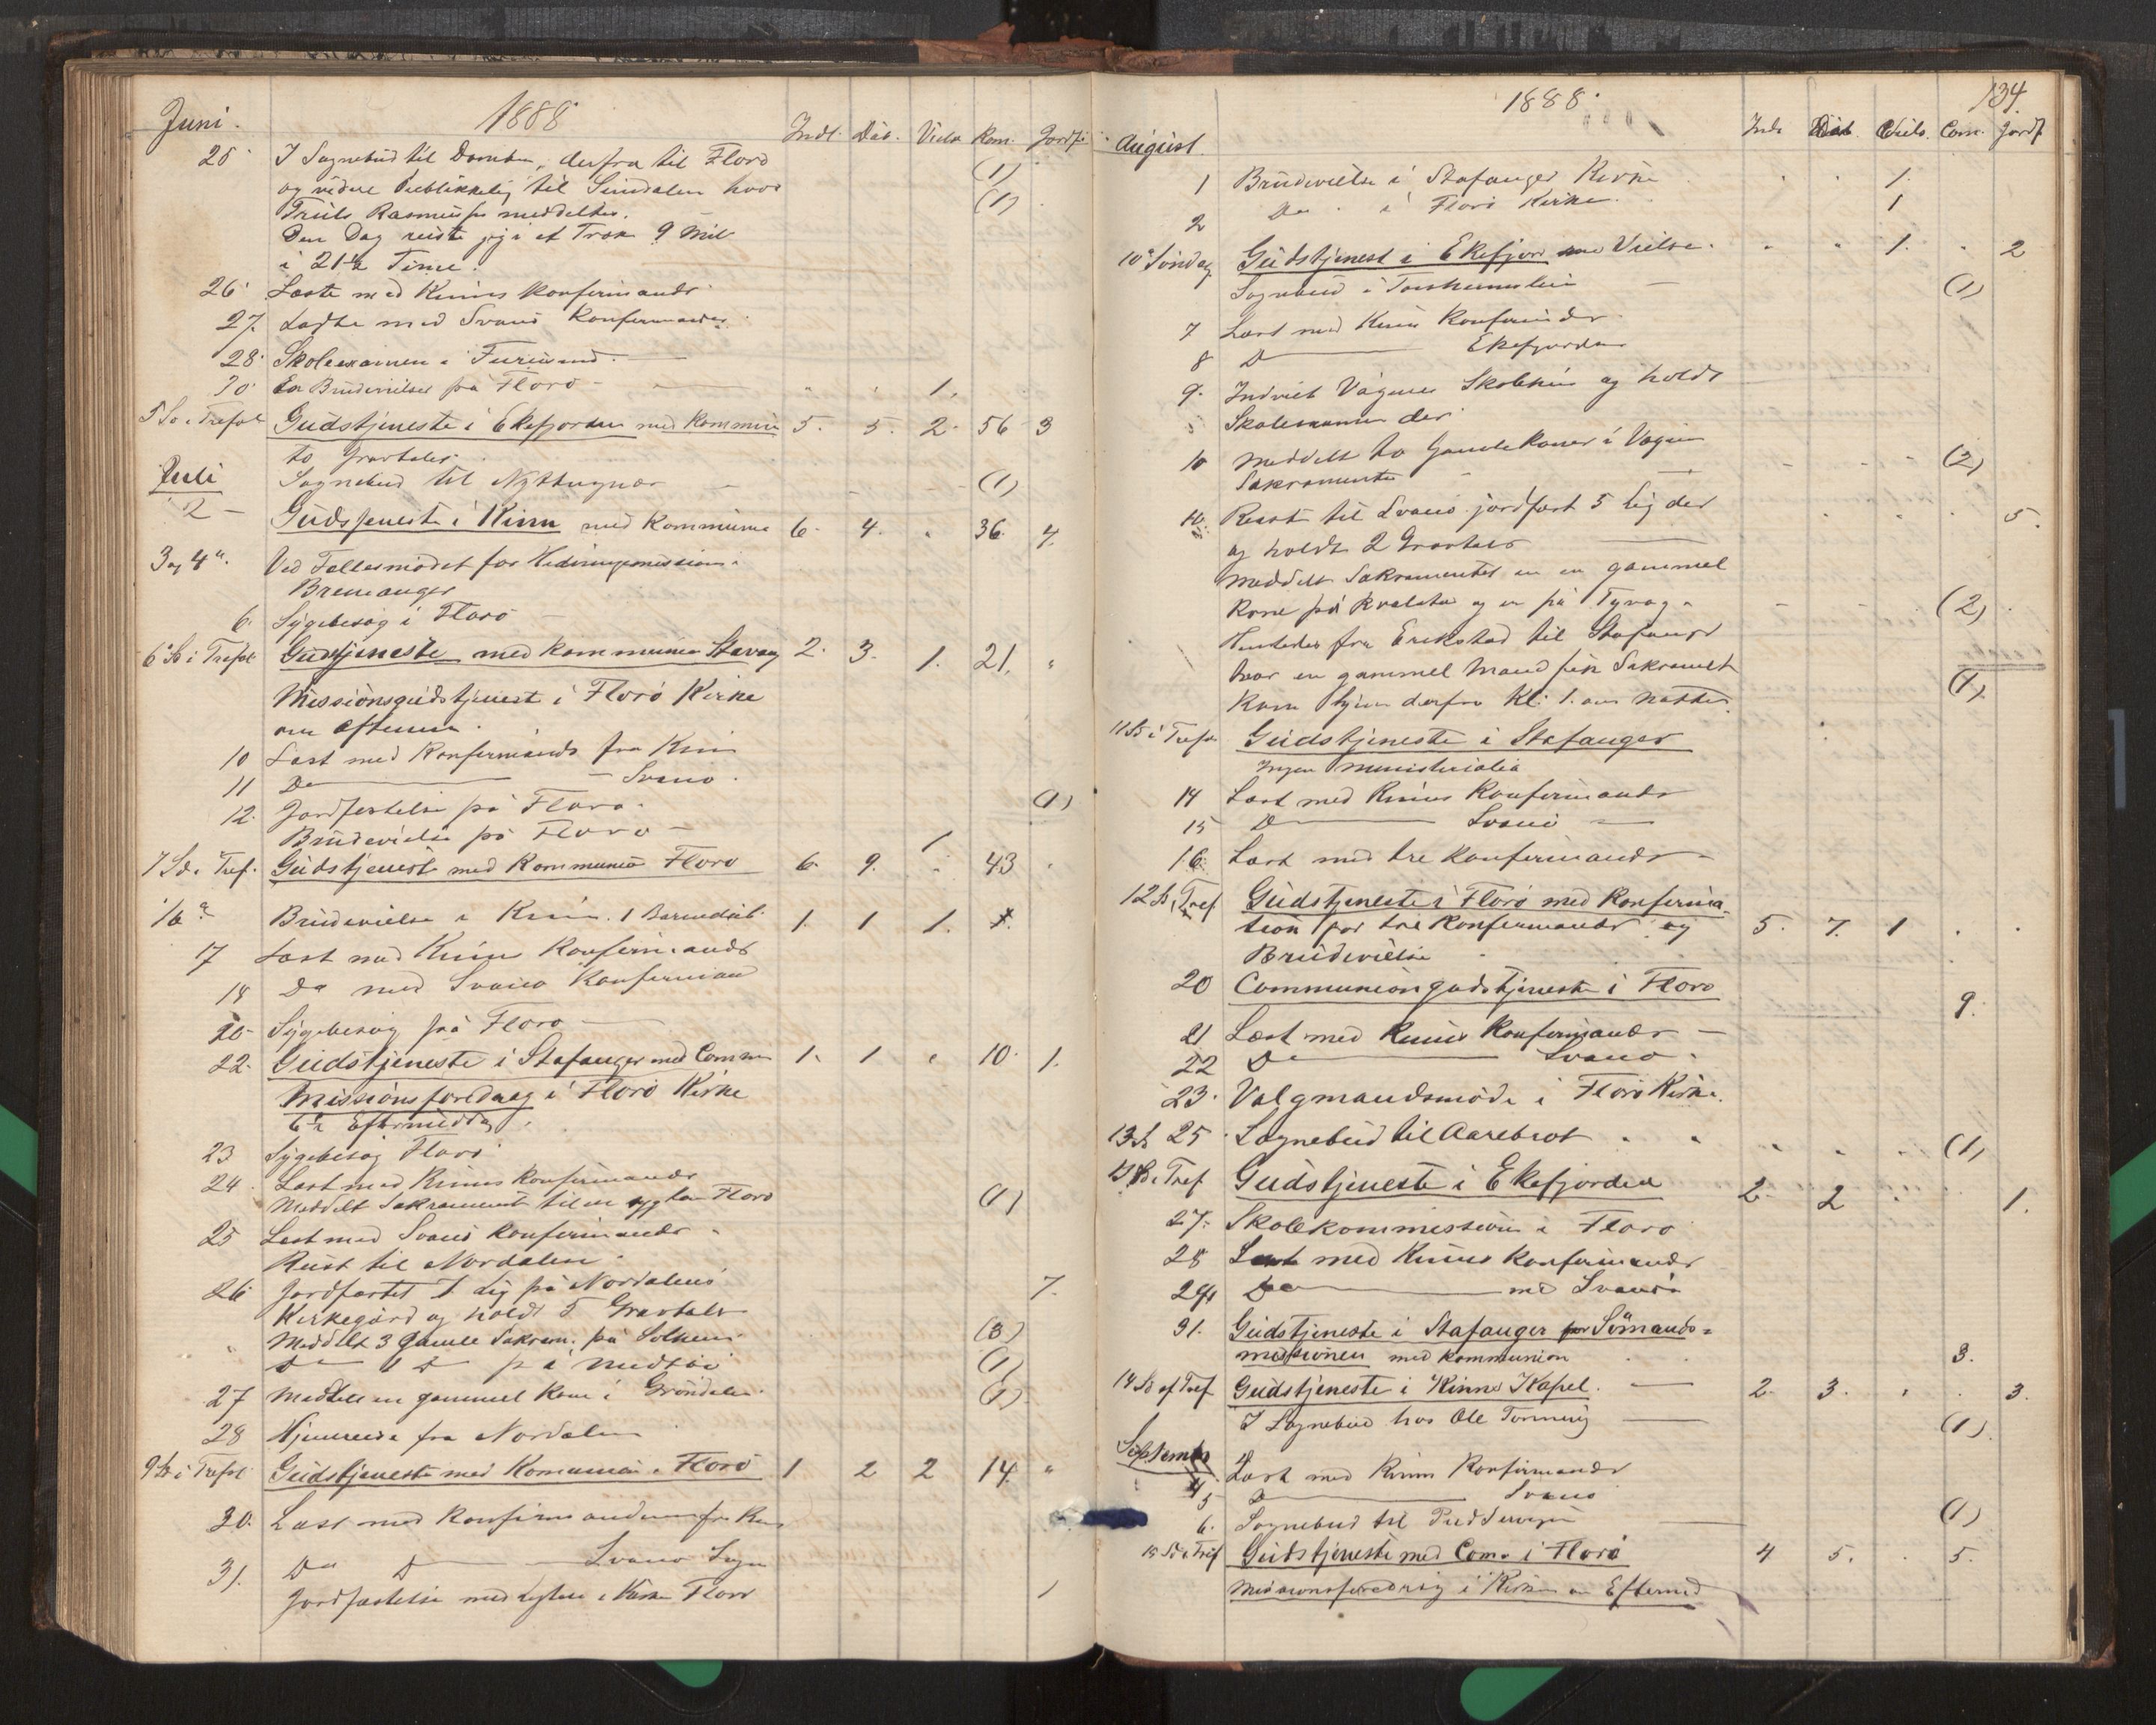 Juni. 1888 Indl. Dåb. Vielse Kom. Jordf.
25 I Sognebud til Domben, derfra til Florø (1)
og videre til Sundalen hvor (1)
Truls Rasmussen meddeltes.
Den Dag reiste jeg i et Træk 9 Mil
i 21½ Time.
26 Læste med Kinns Konfirmander
27. Læste med Svanø Konfirmander
28. Skoleexamen i
30 En Brudevielse på Florø 1.
5 Sø. i Trefol Gudstjeneste i Ekefjorden med Kommun 5. 5. 2. 56 3
to Gravtaler.
Juli Sognebud til (1)
2 Gudstjeneste i Kinn med Kommunion 6. 4. 36. 4.
3 og 4 Ved Fællesmødet for Hedningemissionen i
Bremanger
6. Sygebesøg i Florø
6 Sø i Trefol Gudstjeneste med Kommunion Stavang 2. 3. 1. 21.
Missionsgudstjenest i Florø Kirke
om Aftenen.
10 Læst med Konfirmands fra Kinn
11 Do Svanø.
12. Jordfæstelse på Florø. (1)
Brudevielse på Florø 1
7 Sø. Tref. Gudstjenest med Kommunion Florø 6. 9. 43
16 Brudevielse i Kinn. 1 Barnedåb. 1. 1 1.
17 Læst med Kinns Konfirmander
18 Do med Svanø Konfirmand
20 Sygebesøg på Florø
22. Gudstjeneste i Stafanger med Comm 1. 1 10. 1.
Missionsforedrag i Florø Kirke
Eftermiddag.
23 Sygebesøg Florø
24. Læst med Kinns Konfirmander
Meddelt Sakrament til en syg Florø (1)
25 Læst med Svanø Konfirmander
Reist til Nordalen.
26 Jordfæstet 7 Lig på Nordalens 7.
Kirkegård og holdt 5 Gravtaler
Meddelt 3 gamle Sakram. på Solheim (3)
Do 1 Do på (1)
27 Meddelt en gammel Kone i Grøndalen (1)
28 Hjemreise fra Nordalen
9 Sø i Trefol Gudstjeneste med Komunion i Florø 1 2 2 14.
30. Læst med Konfirmanderne fra Kinn
31. Do Do Svanø Sogn
Jordfæstelse med i Kirken Florø 1
1888. 134.
August. Indl Dåb. Viels. Com. Jordf
1 Brudevielse i Stafanger Kirke 1.
2 Do i Florø Kirke. 1
10 Søndag Gudstjenest i Ekefjord med Vielse. 1. 2
Sognebud i (1)
7 Læst med Kinns Konfirmander
8 Do Ekefjorden
9. Indviet Vågenes Skolehus og holdt
Skoleexamen der.
10 Meddelt to Gamle Koner i Vågen (2)
Sakramentet
10. Reist til Svanø jordfæst 5 Lig der 5.
og holdt 2 Gravtaler
Meddelt Sakramentet en en gammel
Kone på og en på (2)
Hentedes fra Erikstad til Stafanger
hvor en gammel Mand fik Sakrament
Kom hjem derfra Kl: 1. om Natten. (1).
11 Sø i Tref Gudstjeneste i Stafanger
Ingen ministerialia
14 Læst med Kinns Konfirmander
15 Do Svanø
16. Læst med tre Konfirmander
12 Sø i Tref Gudstjeneste i Florø med Konfirma-
tion for tre Konfirmander og 5. 7. 1
Brudevielse
20 Communiongudstjeneste i Florø 9.
21 Læst med Kinns Konfirmander
22 Do Svanø.
23. Valgmandsmøde i Florø Kirke.
13 S 25 Sognebud til Aarebrot (1)
13 Sø i Tref Gudstjeneste i Ekefjorden 2. 2 1.
27. Skolekommission i Florø
28 Læst med Kinns Konfirmander
29 Do med Svanø
31. Gudstjeneste i Stafanger for Sømands-
missionen med Kommunion 3.
14 Sø ef Tref Gudstjeneste i Kinns Kapel. 2. 3. 3.
I Sognebud hos Ole (1).
September
4 Læst med Kinns Konfirmander
5 Do Svanø
6. Sognebud til (1)
15 Sø i Tref Gudstjeneste med Com. i Florø 4 5. 5.
Missionsforedrag i Kirken om Eftermid